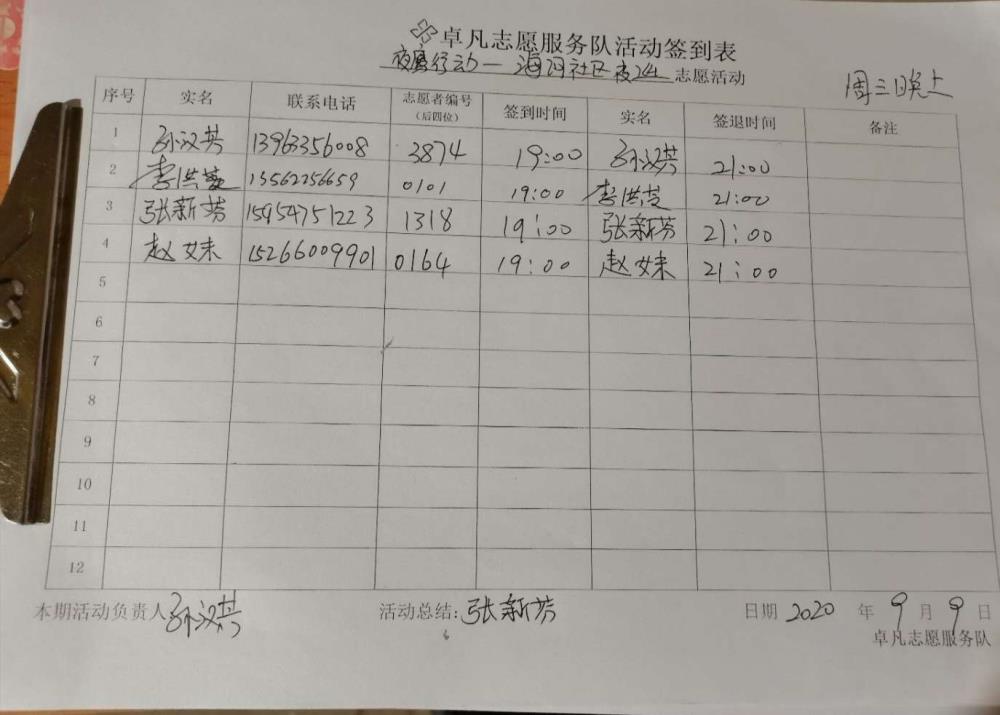 卓凡志愿服务队活动签到表
夜鹰行动一海河社区夜巡 志愿活动
周三晚上
序号 实名 联系电话 志愿者编号(后四位) 签到时间 实名 签退时间 备注
1 孙汉共 13963356008 3874 19:00 孙汉共 21:00
2 李洪菱 13562256659 0101 19:00 李洪菱 21:00
3 张新芳 15954751223 1318 19:00 张新芳 21:00
4 赵妹 15266009901 0164 19:00 赵妹 21:00
5
6
7
8
9
10
11
12
本期活动负责人 孙汉共 活动总结: 张新芳 日期 2020 年 9 月 9 日
卓凡志愿服务队